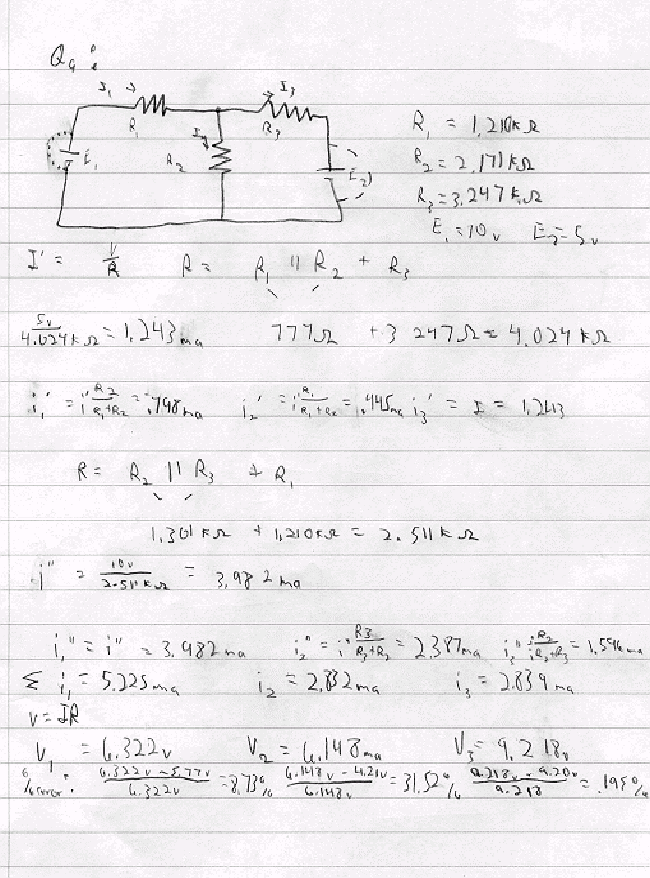 Q4:
I₁ → I₃
R₁ R₃ R₁ = 1,210kΩ
E₁ R₂ I₂ E₂ R₂ = 2,171kΩ
R₃ = 3.247kΩ
E₁ = 10v E₂ = 5v
I' = V/R R = R₁ || R₂ + R₃
5v/4.024kΩ = 1.243ma 777Ω + 3247Ω = 4.024kΩ
i₁' = i' R2/R₁+R₂ = .798ma i₂' = i' R₁/R₁+R₂ = .445ma i₃' = I = 1.243
R = R₂ || R₃ + R₁
1,301kΩ + 1,210kΩ = 2.511kΩ
i" = 10v/2.511kΩ = 3,982ma
i₁" = i" = 3.982ma i₂" = i" R3/R₃+R₂ = 2.387ma i₃" = i R₂/R₂+R₃ = 1.596ma
Σ i₁ = 5.225ma i₂ = 2.832ma i₃ = 2.839ma
V = IR
V₁ = 6.322v V₂ = 6.148ma V₃ = 9.218v
% error: 6.322v - 5.77v/6.322v = 8.73% 6.148v - 4.21v/6.148v = 31.52% 9.218v - 9.20v/9.218 = .195%